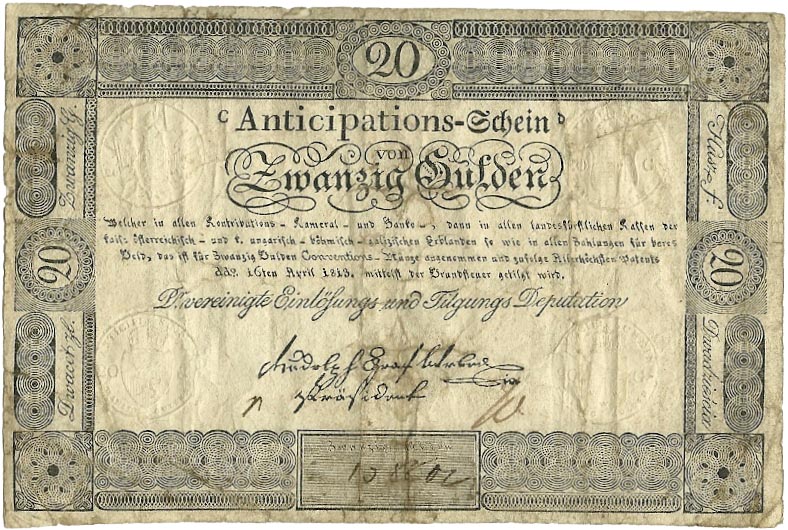 20
C Anticipations-Schein D
von
Zwanzig Gulden
Welcher in allen Kontributions-Kameral-und Banko-, dann in allen landesfürstlichen Kassen der
kais. österreichisch-und k. ungarisch-böhmisch-galizischen Erblanden so wie in allen Zahlungen für bares
Geld, das ist für Zwanzig Gulden Conventions-Münze angenommen und zufolge Allerhöchsten Patents
ddo. 16ten April 1813. mittelst der Grundsteuer getilgt wird.
Die vereinigte Einlösungs-und Tilgungs Deputation
Rudolph Graf
Präsident
Zwanzig G.
20
Dwacet zl.
Húsz f.
20
Dwadzieścia